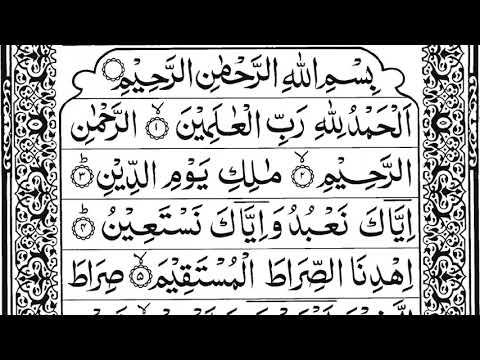 بِسْمِ اللهِ الرَّحْمٰنِ الرَّحِيْمِ
اَلْحَمْدُ لِلّٰهِ رَبِّ الْعٰلَمِيْنَ ۙ﴿۱﴾ الرَّحْمٰنِ
الرَّحِيْمِ ۙ﴿۲﴾ مٰلِكِ يَوْمِ الدِّيْنِ ؕ﴿۳﴾
اِيَّاكَ نَعْبُدُ وَاِيَّاكَ نَسْتَعِيْنُ ؕ﴿۴﴾
اِهْدِنَا الصِّرَاطَ الْمُسْتَقِيْمَ ۙ﴿۵﴾ صِرَاطَ